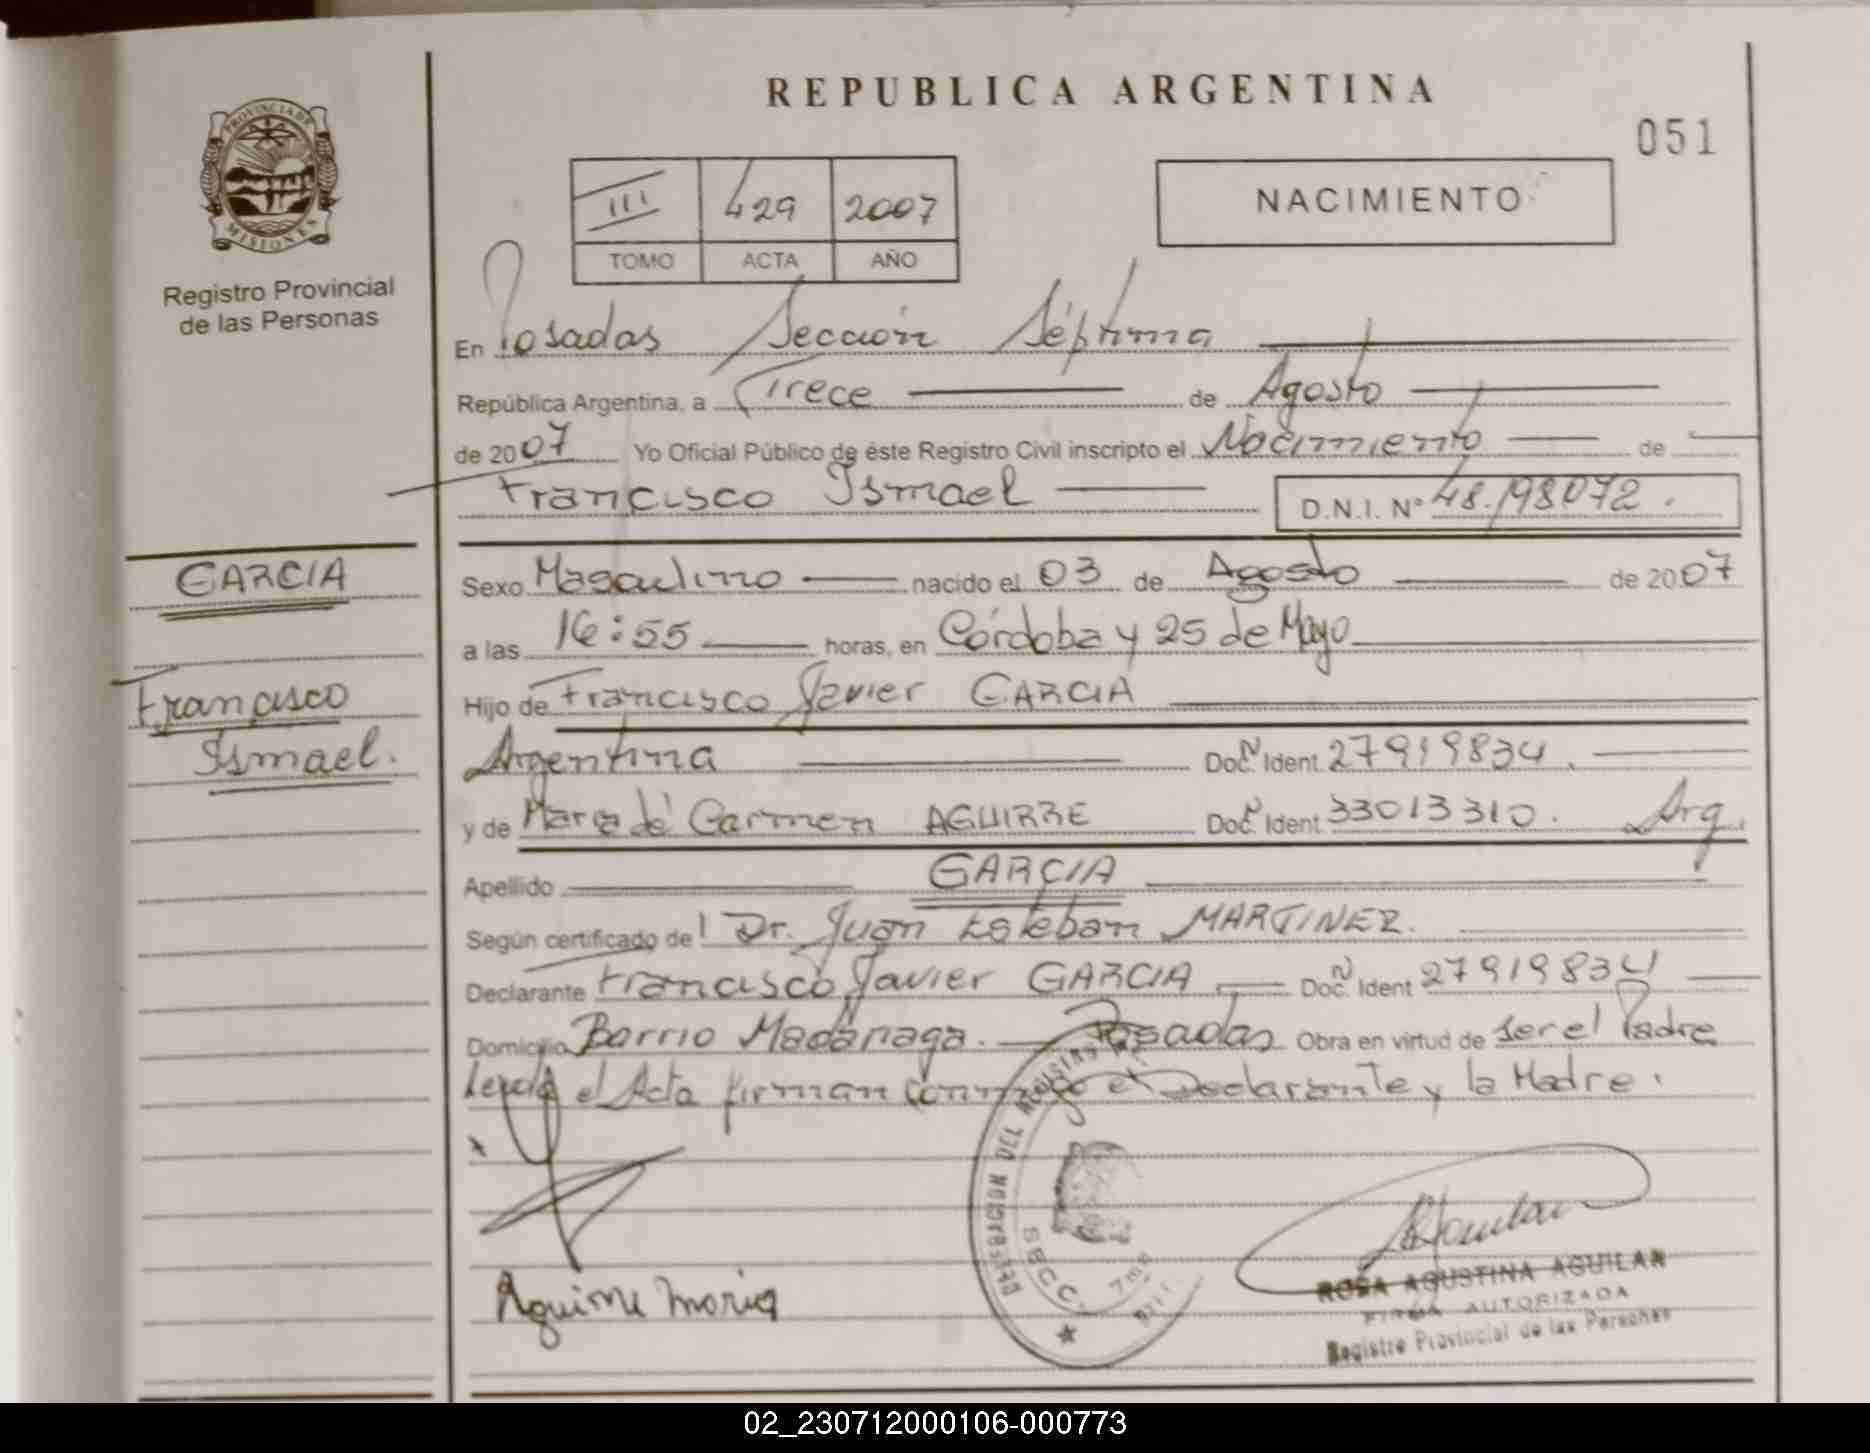 REPUBLICA ARGENTINA
051
PROVINCIA DE MISIONES
Registro Provincial
de las Personas
III 429 2007
TOMO ACTA AÑO
NACIMIENTO
En Posadas Sección Séptima
República Argentina, a Trece de Agosto
de 2007 Yo Oficial Público de éste Registro Civil inscripto el Nacimiento de
Francisco Ismael D.N.I. Nº 48.198072.
GARCIA
Francisco
Ismael.
Sexo Masculino nacido el 03 de Agosto de 2007
a las 16:55 horas, en Córdoba y 25 de Mayo
Hijo de Francisco Javier GARCIA
Argentina Doc. Nº Ident 27919834.
y de María del Carmen AGUIRRE Doc. Nº Ident 33013310. Arg.
Apellido GARCIA
Según certificado del Dr. Juan Esteban MARTINEZ.
Declarante Francisco Javier GARCIA Doc. Nº Ident 27919834
Domicilio Barrio Madariaga. Posadas Obra en virtud de ser el Padre
Leyda el Acta firman conmigo el Declarante y la Madre.
DELEGACION DEL REGISTRO
SECC. 7ma
Aguirre Maria
ROSA AGUSTINA AGUILAR
FIRMA AUTORIZADA
Registro Provincial de las Personas
02_230712000106-000773